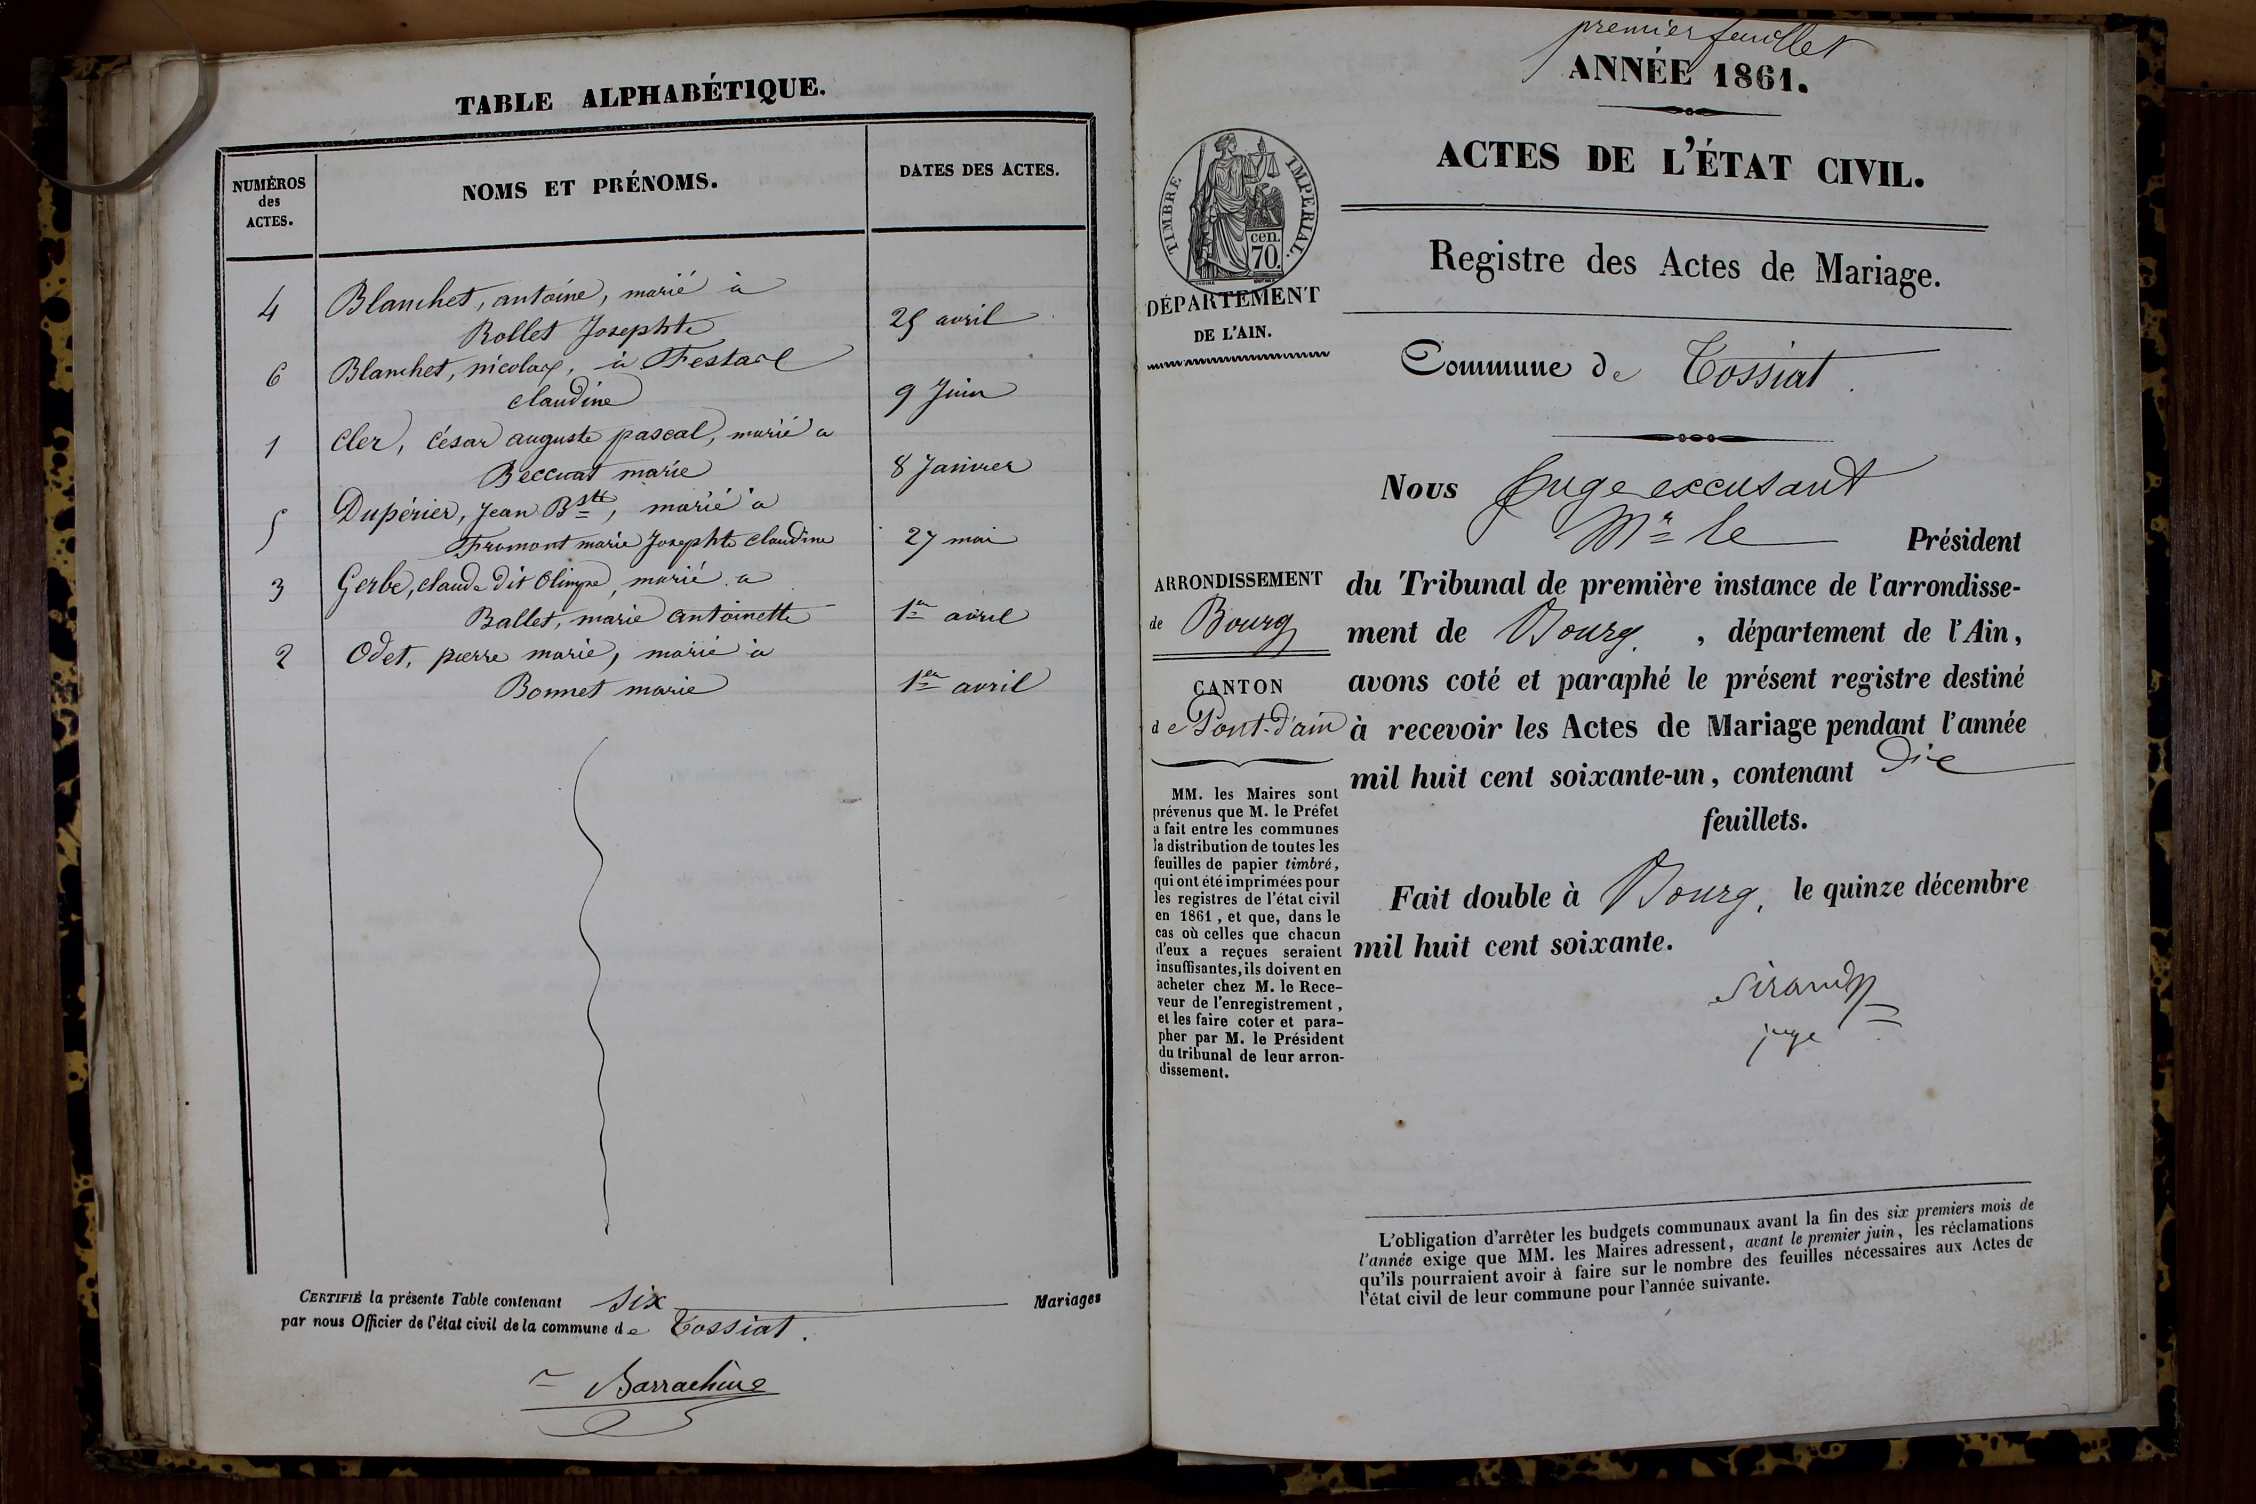 TABLE ALPHABÉTIQUE.
NUMÉROS
des
ACTES.
NOMS ET PRÉNOMS.
DATES DES ACTES.
4 Blanchet, antoine, marié à
Rollet Josephte 25 avril
6 Blanchet, nicolas, à Festaz
claudine 9 Juin
1 Cler, César auguste pascal, marié à
Beccuat marie 8 Janvier
5 Dupérier, Jean Bste, marié à
Fromont marie Josephte claudine 27 mai
3 Gerbe, claude dit Olimpe, marié à
Ballet, marie antoinette 1er avril
2 Odet, pierre marie, marié à
Bonnet marie 1er avril
CERTIFIÉ la présente Table contenant six Mariages
par nous Officier de l'état civil de la commune de Tossiat.
Barrachine
premier feuillet
ANNÉE 1861.
ACTES DE L'ÉTAT CIVIL.
TIMBRE IMPÉRIAL.
cen.
70.
DÉPARTEMENT
DE L'AIN.
Registre des Actes de Mariage.
Commune de Tossiat.
ARRONDISSEMENT
de Bourg
CANTON
de Pont-d'ain
MM. les Maires sont
prévenus que M. le Préfet
a fait entre les communes
la distribution de toutes les
feuilles de papier timbré,
qui ont été imprimées pour
les registres de l'état civil
en 1861, et que, dans le
cas où celles que chacun
d'eux a reçues seraient
insuffisantes, ils doivent en
acheter chez M. le Rece-
veur de l'enregistrement,
et les faire coter et para-
pher par M. le Président
du tribunal de leur arron-
dissement.
Nous Juge excusant
Mr le Président
du Tribunal de première instance de l'arrondisse-
ment de Bourg, département de l'Ain,
avons coté et paraphé le présent registre destiné
à recevoir les Actes de Mariage pendant l'année
mil huit cent soixante-un, contenant dix
feuillets.
Fait double à Bourg, le quinze décembre
mil huit cent soixante.
juge
L'obligation d'arrêter les budgets communaux avant la fin des six premiers mois de
l'année exige que MM. les Maires adressent, avant le premier juin, les réclamations
qu'ils pourraient avoir à faire sur le nombre des feuilles nécessaires aux Actes de
l'état civil de leur commune pour l'année suivante.